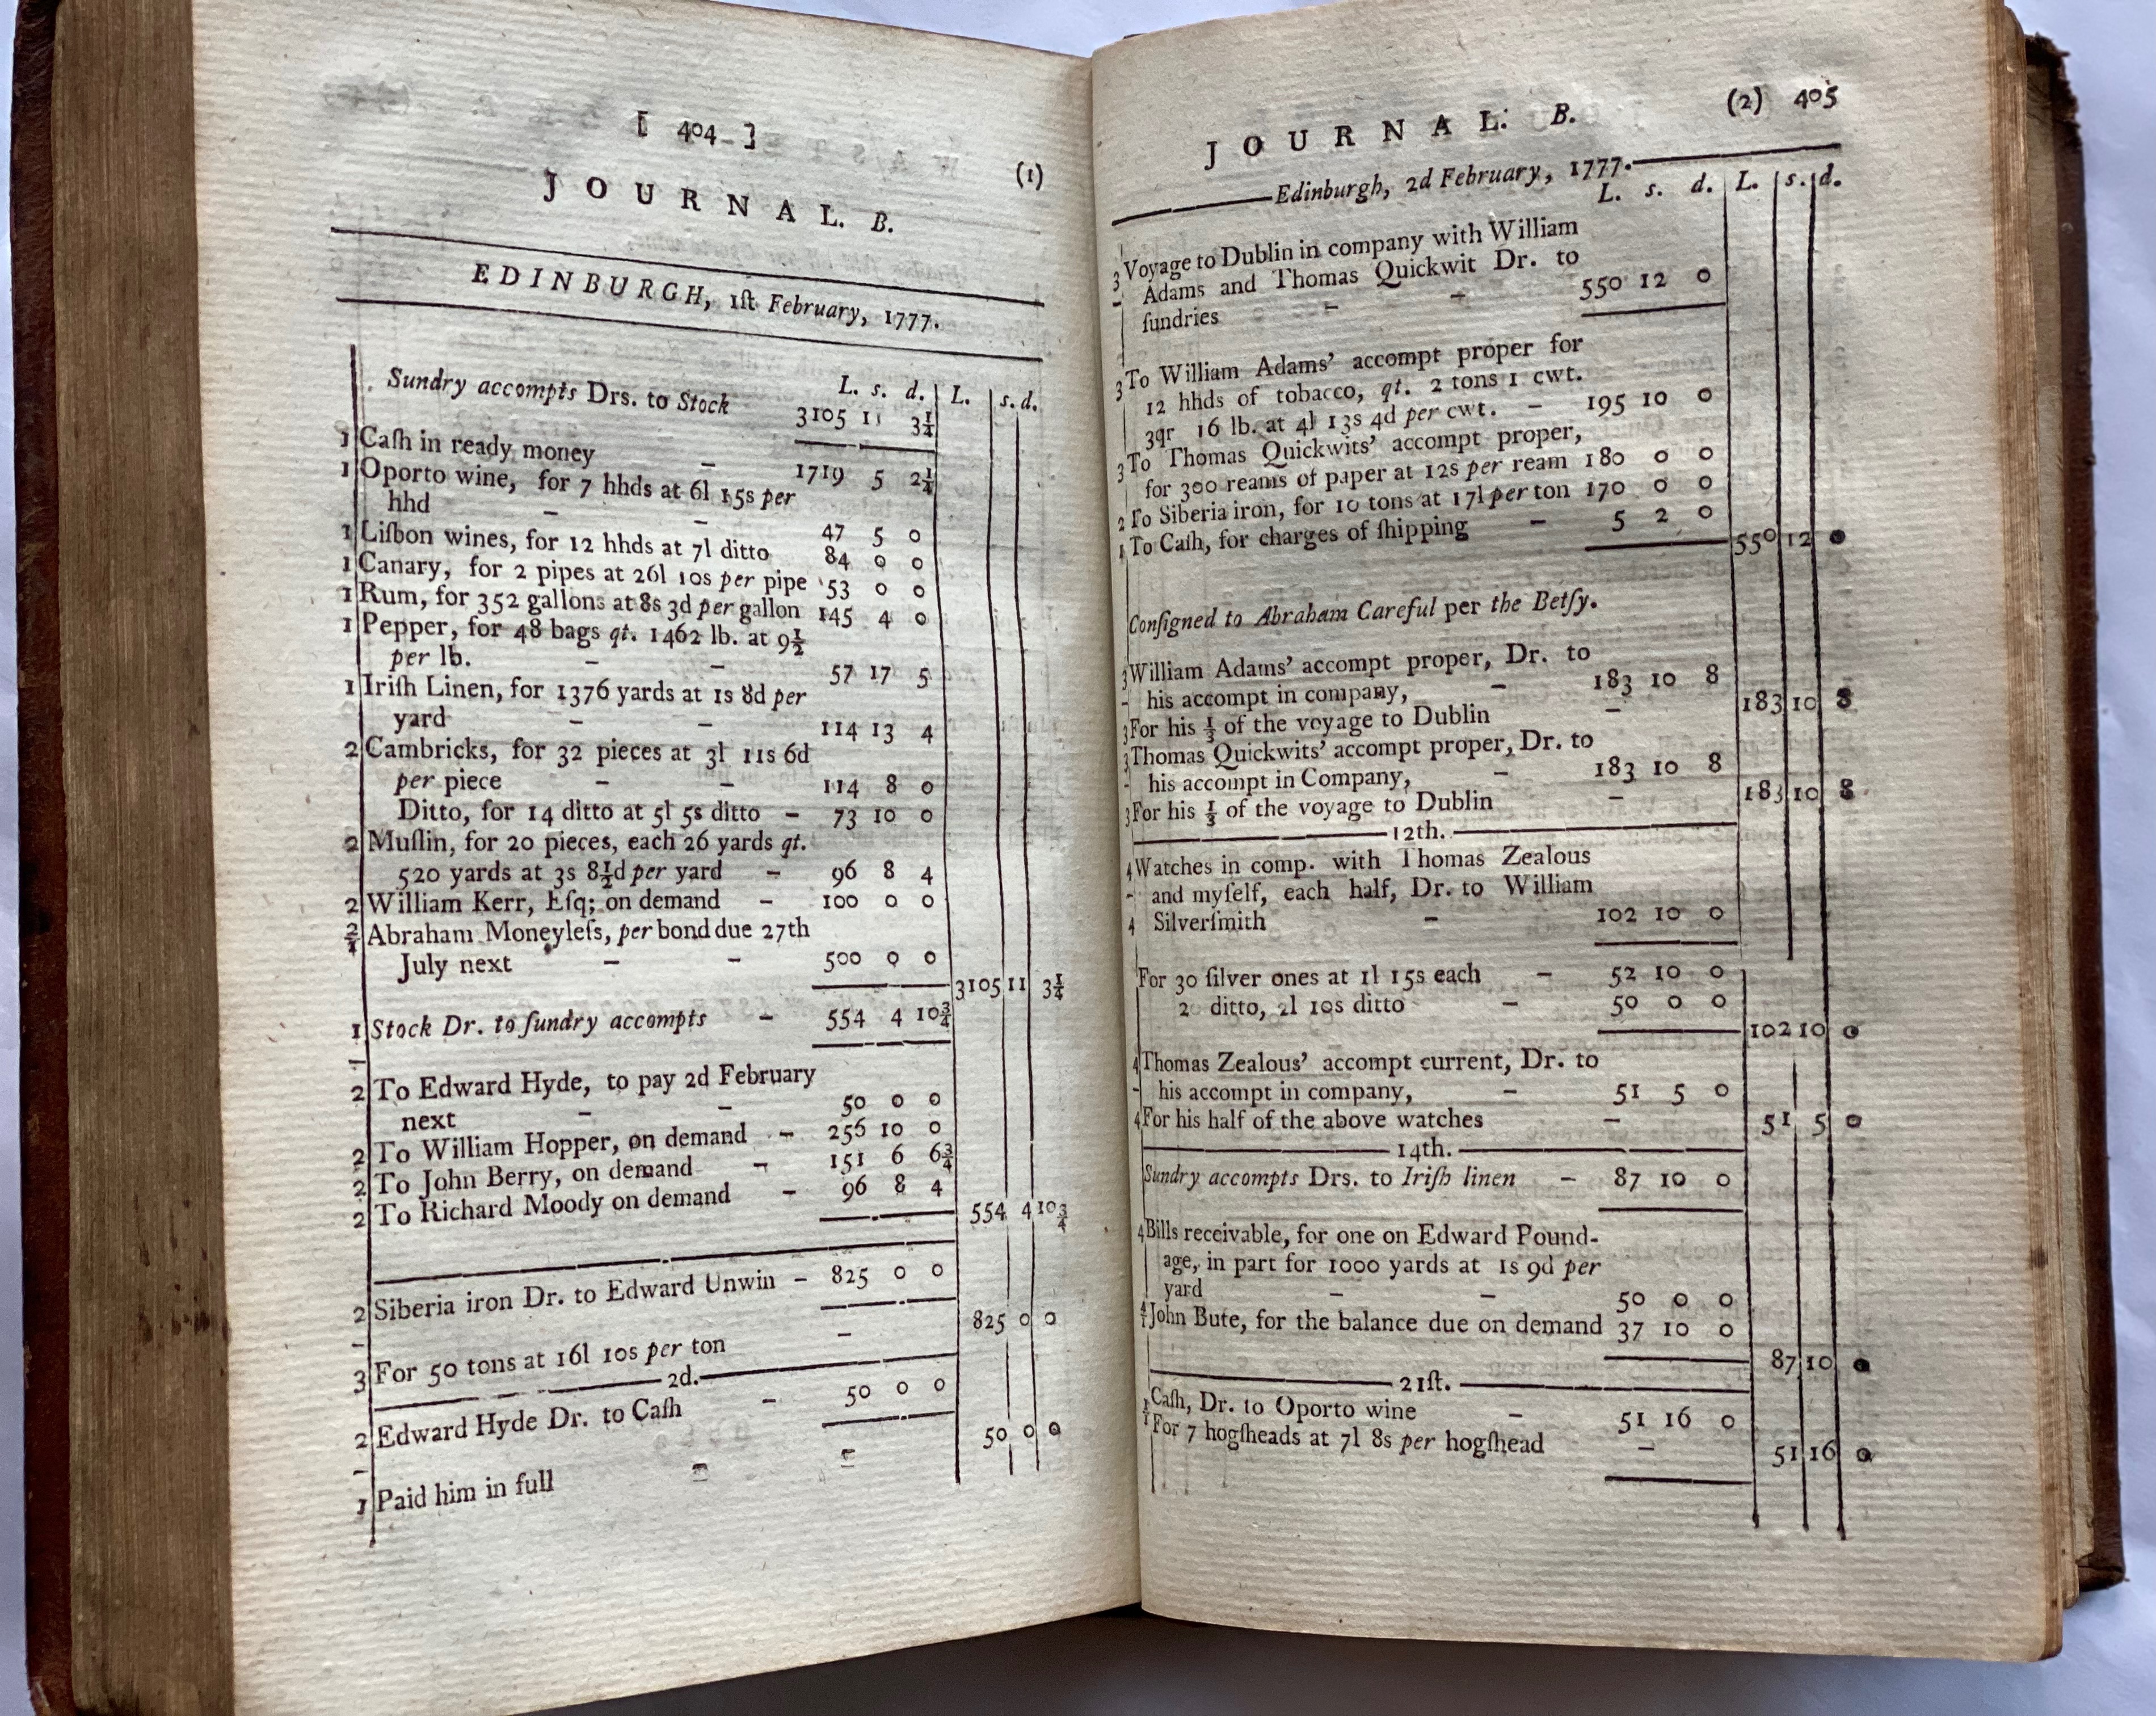 [ 404 ]
(1)
J O U R N A L. B.
EDINBURGH, 1ſt February, 1777.
L. s. d. L. s. d.
Sundry accompts Drs. to Stock 3105 11 3¼
1 Caſh in ready money – 1719 5 2¼
1 Oporto wine, for 7 hhds at 6l 15s per
hhd – – 47 5 0
1 Liſbon wines, for 12 hhds at 7l ditto 84 0 0
1 Canary, for 2 pipes at 26l 10s per pipe 53 0 0
1 Rum, for 352 gallons at 8s 3d per gallon 145 4 0
1 Pepper, for 48 bags qt. 1462 lb. at 9½
per lb. – – 57 17 5
1 Iriſh Linen, for 1376 yards at 1s 8d per
yard – – 114 13 4
2 Cambricks, for 32 pieces at 3l 11s 6d
per piece – – 114 8 0
Ditto, for 14 ditto at 5l 5s ditto – 73 10 0
2 Muſlin, for 20 pieces, each 26 yards qt.
520 yards at 3s 8½d per yard – 96 8 4
2 William Kerr, Eſq; on demand – 100 0 0
2/1 Abraham Moneyleſs, per bond due 27th
July next – – 500 0 0
3105 11 3¼
1 Stock Dr. to ſundry accompts – 554 4 10¾
–
2 To Edward Hyde, to pay 2d February
next – – 50 0 0
2 To William Hopper, on demand – 256 10 0
2 To John Berry, on demand – 151 6 6¾
2 To Richard Moody on demand – 96 8 4
554 4 10¾
2 Siberia iron Dr. to Edward Unwin – 825 0 0
–
825 0 0
3 For 50 tons at 16l 10s per ton –
2d.
2 Edward Hyde Dr. to Caſh – 50 0 0
–
50 0 0
1 Paid him in full – –
J O U R N A L. B. (2) 405
Edinburgh, 2d February, 1777.
L. s. d. L. s. d.
3 Voyage to Dublin in company with William
– Adams and Thomas Quickwit Dr. to
ſundries – – 550 12 0
3 To William Adams' accompt proper for
12 hhds of tobacco, qt. 2 tons 1 cwt.
3qr 16 lb. at 4l 13s 4d per cwt. – 195 10 0
3 To Thomas Quickwits' accompt proper,
for 300 reams of paper at 12s per ream 180 0 0
2 To Siberia iron, for 10 tons at 17l per ton 170 0 0
1 To Caſh, for charges of ſhipping – 5 2 0
550 12 0
Conſigned to Abraham Careful per the Betſy.
3 William Adams' accompt proper, Dr. to
– his accompt in company, – 183 10 8
3 For his ⅓ of the voyage to Dublin – 183 10 8
3 Thomas Quickwits' accompt proper, Dr. to
– his accompt in Company, – 183 10 8
3 For his ⅓ of the voyage to Dublin – 183 10 8
12th.
4 Watches in comp. with Thomas Zealous
– and myſelf, each half, Dr. to William
4 Silverſmith – 102 10 0
For 30 ſilver ones at 1l 15s each – 52 10 0
20 ditto, 2l 10s ditto – 50 0 0
102 10 0
4 Thomas Zealous' accompt current, Dr. to
– his accompt in company, – 51 5 0
4 For his half of the above watches – 51 5 0
14th.
Sundry accompts Drs. to Iriſh linen – 87 10 0
4 Bills receivable, for one on Edward Pound-
age, in part for 1000 yards at 1s 9d per
yard – – 50 0 0
4/1 John Bute, for the balance due on demand 37 10 0
87 10 0
21ſt.
1/1 Caſh, Dr. to Oporto wine – 51 16 0
For 7 hogſheads at 7l 8s per hogſhead – 51 16 0